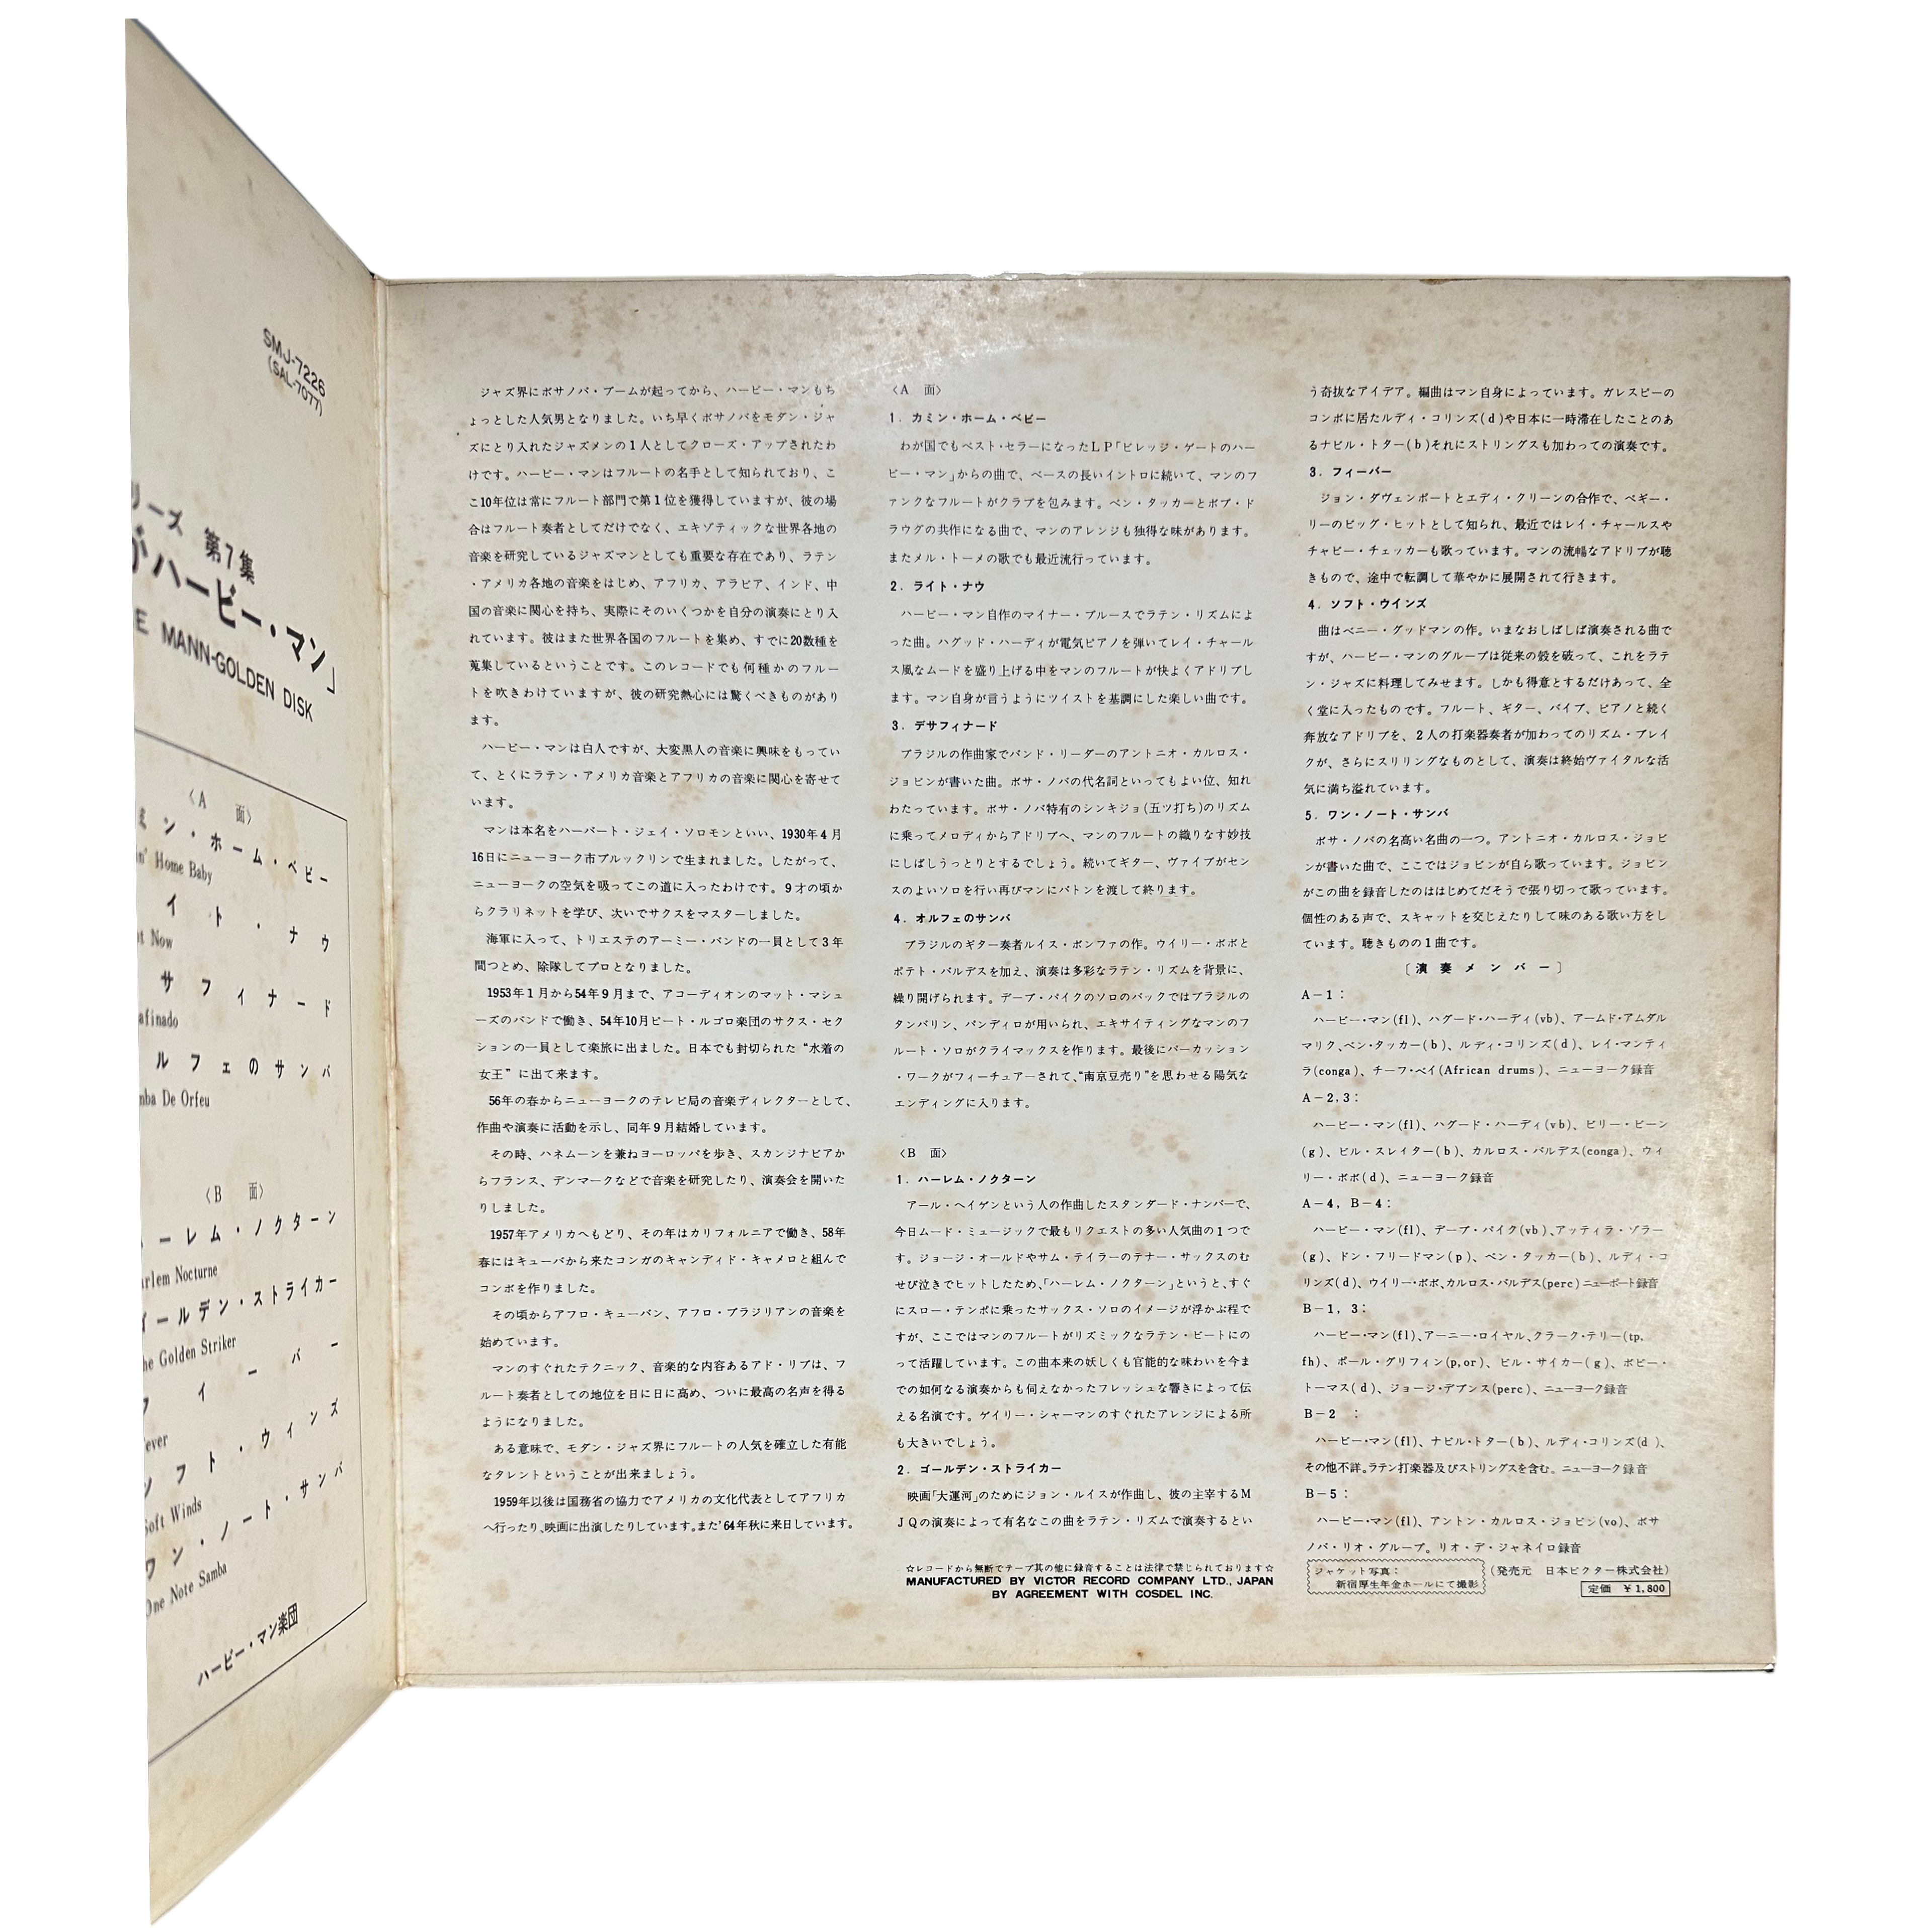 SMJ-7226
(SAL-7077)
リーズ 第7集
がハービー・マン」
E MANN-GOLDEN DISK
〈A 面〉
ミン・ホーム・ベビー
n' Home Baby
イト・ナウ
t Now
サフィナード
afinado
ルフェのサンバ
mba De Orfeu
〈B 面〉
ーレム・ノクターン
arlem Nocturne
ールデン・ストライカー
he Golden Striker
フィーバー
Fever
ソフト・ウインズ
Soft Winds
ワン・ノート・サンバ
One Note Samba
ハービー・マン楽団
ジャズ界にボサノバ・ブームが起ってから、ハービー・マンもち
ょっとした人気男となりました。いち早くボサノバをモダン・ジャ
ズにとり入れたジャズメンの1人としてクローズ・アップされたわ
けです。ハービー・マンはフルートの名手として知られており、こ
こ10年位は常にフルート部門で第1位を獲得していますが、彼の場
合はフルート奏者としてだけでなく、エキゾティックな世界各地の
音楽を研究しているジャズマンとしても重要な存在であり、ラテン
・アメリカ各地の音楽をはじめ、アフリカ、アラビア、インド、中
国の音楽に関心を持ち、実際にそのいくつかを自分の演奏にとり入
れています。彼はまた世界各国のフルートを集め、すでに20数種を
蒐集しているということです。このレコードでも何種かのフルー
トを吹きわけていますが、彼の研究熱心には驚くべきものがあり
ます。
ハービー・マンは白人ですが、大変黒人の音楽に興味をもってい
て、とくにラテン・アメリカ音楽とアフリカの音楽に関心を寄せて
います。
マンは本名をハーバート・ジェイ・ソロモンといい、1930年4月
16日にニューヨーク市ブルックリンで生まれました。したがって、
ニューヨークの空気を吸ってこの道に入ったわけです。9才の頃か
らクラリネットを学び、次いでサクスをマスターしました。
海軍に入って、トリエステのアーミー・バンドの一員として3年
間つとめ、除隊してプロとなりました。
1953年1月から54年9月まで、アコーディオンのマット・マシュ
ーズのバンドで働き、54年10月ピート・ルゴロ楽団のサクス・セク
ションの一員として楽旅に出ました。日本でも封切られた“水着の
女王”に出て来ます。
56年の春からニューヨークのテレビ局の音楽ディレクターとして、
作曲や演奏に活動を示し、同年9月結婚しています。
その時、ハネムーンを兼ねヨーロッパを歩き、スカンジナビアか
らフランス、デンマークなどで音楽を研究したり、演奏会を開いた
りしました。
1957年アメリカへもどり、その年はカリフォルニアで働き、58年
春にはキューバから来たコンガのキャンディド・キャメロと組んで
コンボを作りました。
その頃からアフロ・キューバン、アフロ・ブラジリアンの音楽を
始めています。
マンのすぐれたテクニック、音楽的な内容あるアド・リブは、フ
ルート奏者としての地位を日に日に高め、ついに最高の名声を得る
ようになりました。
ある意味で、モダン・ジャズ界にフルートの人気を確立した有能
なタレントということが出来ましょう。
1959年以後は国務省の協力でアメリカの文化代表としてアフリカ
へ行ったり、映画に出演したりしています。また'64年秋に来日しています。
〈A 面〉
1. カミン・ホーム・ベビー
わが国でもベスト・セラーになったLP「ビレッジ・ゲートのハー
ビー・マン」からの曲で、ベースの長いイントロに続いて、マンのフ
ァンクなフルートがクラブを包みます。ベン・タッカーとボブ・ド
ラウグの共作になる曲で、マンのアレンジも独得な味があります。
またメル・トーメの歌でも最近流行っています。
2. ライト・ナウ
ハービー・マン自作のマイナー・ブルースでラテン・リズムによ
った曲。ハグッド・ハーディが電気ピアノを弾いてレイ・チャール
ス風なムードを盛り上げる中をマンのフルートが快よくアドリブし
ます。マン自身が言うようにツイストを基調にした楽しい曲です。
3. デサフィナード
ブラジルの作曲家でバンド・リーダーのアントニオ・カルロス・
ジョビンが書いた曲。ボサ・ノバの代名詞といってもよい位、知れ
わたっています。ボサ・ノバ特有のシンキジョ(五ツ打ち)のリズム
に乗ってメロディからアドリブへ、マンのフルートの織りなす妙技
にしばしうっとりとするでしょう。続いてギター、ヴァイブがセン
スのよいソロを行い再びマンにバトンを渡して終ります。
4. オルフェのサンバ
ブラジルのギター奏者ルイス・ボンファの作。ウイリー・ボボと
ポテト・バルデスを加え、演奏は多彩なラテン・リズムを背景に、
繰り開げられます。デーブ・パイクのソロのバックではブラジルの
タンバリン、パンディロが用いられ、エキサイティングなマンのフ
ルート・ソロがクライマックスを作ります。最後にパーカッション
・ワークがフィーチュアーされて、“南京豆売り”を思わせる陽気な
エンディングに入ります。
〈B 面〉
1. ハーレム・ノクターン
アール・ヘイゲンという人の作曲したスタンダード・ナンバーで、
今日ムード・ミュージックで最もリクエストの多い人気曲の1つで
す。ジョージ・オールドやサム・テイラーのテナー・サックスのむ
せび泣きでヒットしたため、「ハーレム・ノクターン」というと、すぐ
にスロー・テンポに乗ったサックス・ソロのイメージが浮かぶ程で
すが、ここではマンのフルートがリズミックなラテン・ビートにの
って活躍しています。この曲本来の妖しくも官能的な味わいを今ま
での如何なる演奏からも伺えなかったフレッシュな響きによって伝
える名演です。ゲイリー・シャーマンのすぐれたアレンジによる所
も大きいでしょう。
2. ゴールデン・ストライカー
映画「大運河」のためにジョン・ルイスが作曲し、彼の主宰するM
JQの演奏によって有名なこの曲をラテン・リズムで演奏するとい
☆レコードから無断でテープ其の他に録音することは法律で禁じられております☆
MANUFACTURED BY VICTOR RECORD COMPANY LTD., JAPAN
BY AGREEMENT WITH COSDEL INC.
う奇抜なアイデア。編曲はマン自身によっています。ガレスピーの
コンボに居たルディ・コリンズ(d)や日本に一時滞在したことのあ
るナビル・トター(b)それにストリングスも加わっての演奏です。
3. フィーバー
ジョン・ダヴェンポートとエディ・クリーンの合作で、ペギー・
リーのビッグ・ヒットとして知られ、最近ではレイ・チャールスや
チャビー・チェッカーも歌っています。マンの流暢なアドリブが聴
きもので、途中で転調して華やかに展開されて行きます。
4. ソフト・ウインズ
曲はベニー・グッドマンの作。いまなおしばしば演奏される曲で
すが、ハービー・マンのグループは従来の殻を破って、これをラテ
ン・ジャズに料理してみせます。しかも得意とするだけあって、全
く堂に入ったものです。フルート、ギター、バイブ、ピアノと続く
奔放なアドリブを、2人の打楽器奏者が加わってのリズム・ブレイ
クが、さらにスリリングなものとして、演奏は終始ヴァイタルな活
気に満ち溢れています。
5. ワン・ノート・サンバ
ボサ・ノバの名高い名曲の一つ。アントニオ・カルロス・ジョビ
ンが書いた曲で、ここではジョビンが自ら歌っています。ジョビン
がこの曲を録音したのははじめてだそうで張り切って歌っています。
個性のある声で、スキャットを交じえたりして味のある歌い方をし
ています。聴きものの1曲です。
〔演奏メンバー〕
A-1：
ハービー・マン(fl)、ハグード・ハーディ(vb)、アームド・アムダル
マリク、ベン・タッカー(b)、ルディ・コリンズ(d)、レイ・マンティ
ラ(conga)、チーフ・ベイ(African drums)、ニューヨーク録音
A-2,3：
ハービー・マン(fl)、ハグード・ハーディ(vb)、ビリー・ビーン
(g)、ビル・スレイター(b)、カルロス・バルデス(conga)、ウィ
リー・ボボ(d)、ニューヨーク録音
A-4, B-4：
ハービー・マン(fl)、デーブ・パイク(vb)、アッティラ・ゾラー
(g)、ドン・フリードマン(p)、ベン・タッカー(b)、ルディ・コ
リンズ(d)、ウイリー・ボボ、カルロス・バルデス(perc)ニューポート録音
B-1, 3：
ハービー・マン(fl)、アーニー・ロイヤル、クラーク・テリー(tp,
fh)、ポール・グリフィン(p,or)、ビル・サイカー(g)、ボビー・
トーマス(d)、ジョージ・デブンス(perc)、ニューヨーク録音
B-2 ：
ハービー・マン(fl)、ナビル・トター(b)、ルディ・コリンズ(d)、
その他不詳。ラテン打楽器及びストリングスを含む。ニューヨーク録音
B-5：
ハービー・マン(fl)、アントン・カルロス・ジョビン(vo)、ボサ
ノバ・リオ・グループ。リオ・デ・ジャネイロ録音
ジャケット写真：
新宿厚生年金ホールにて撮影
(発売元 日本ビクター株式会社)
定価 ¥1,800